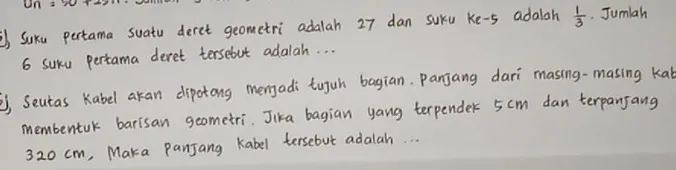 Suku pertama suatu deret geometri adalah 27 dan suku ke-5 adalah 1/3. Jumlah
6 suku pertama deret tersebut adalah ...
Seutas kabel akan dipotong menjadi tujuh bagian. panjang dari masing-masing kab
membentuk barisan geometri. Jika bagian yang terpendek 5 cm dan terpanjang
320 cm, Maka panjang kabel tersebut adalah ...